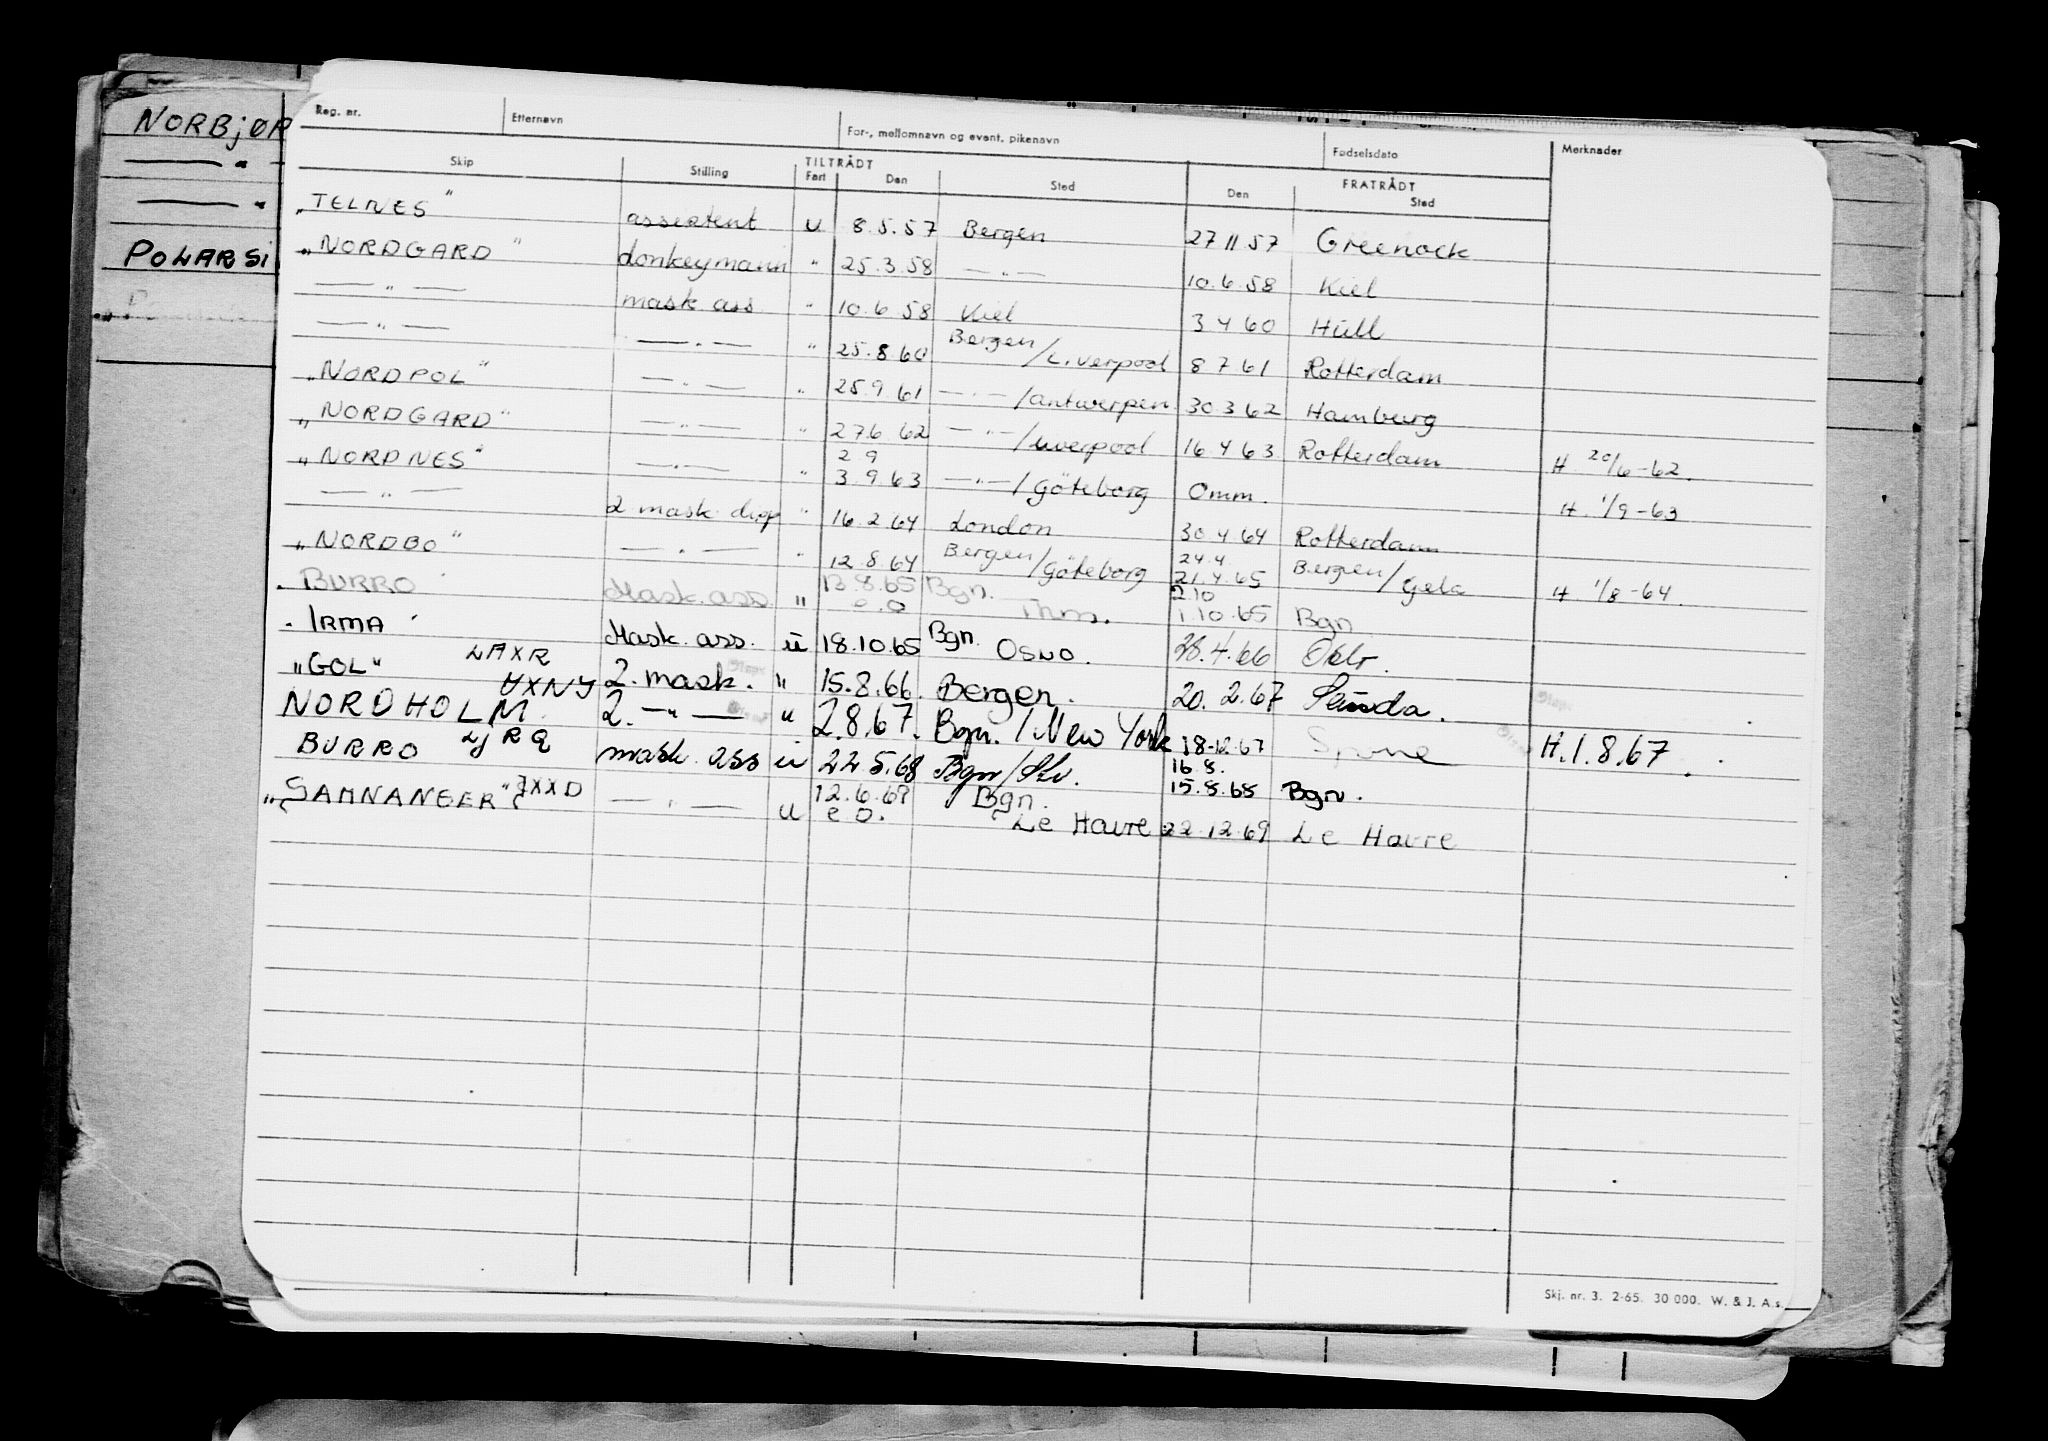 NORBJØR
— " —
— " —
POLARSI
Reg. nr. Etternavn For-, mellomnavn og event. pikenavn Fødselsdato Merknader
Skip Stilling TILTRÅDT FRATRÅDT
Fart Den Sted Den Sted
„TELNES" assistent u 8.5.57 Bergen 27 11 57 Greenock
„NORDGARD" donkeymann " 25.3.58 — " — 10.6.58 Kiel
— " — mask ass " 10.6 58 Kiel 3 4 60 Hull
— " — — " — " 25.8.60 Bergen/Liverpool 8 7 61 Rotterdam
„NORDPOL" — " — " 25.9 61 — " — /Antwerpen 30 3 62 Hamburg
„NORDGARD" — " — " 27.6 62 — " — /Liverpool 16 4 63 Rotterdam H 20/6-62.
„NORDNES" — " — " 2 9
3.9.63 — " — /Göteborg Omm. H. 1/9-63
— " — 2 mask disp " 16.2.64 London 30 4 64 Rotterdam
„NORDBO" — " — " 12.8.64 Bergen/Göteborg 24.4.
21.4.65 Bergen/Gela H 1/8-64.
BURRO Mask. ass. " 13.8.65 Bgn.
e.o Thm. 2.10
1.10.65 Bgn
IRMA Mask. ass. u 18.10.65 Bgn. OSLO. 28.4.66 Oslo.
„GOL" LAXR 2. mask. " 15.8.66. Bergen. 20.2.67 Sauda.
NORDHOLM. 2. — " — " 2.8.67. Bgn. / New York 18-12-67 H.1.8.67.
BURRO LJRQ mask. ass u 22 5.68 Bgn/Stv. 16.8.
15.8.68 Bgn.
„SAMNANGER" JXXD — " — u 12.6.69 Bgn.
e o. Le Havre 22.12.69 Le Havre
Skj. nr. 3. 2-65. 30 000. W. & J. A.s.